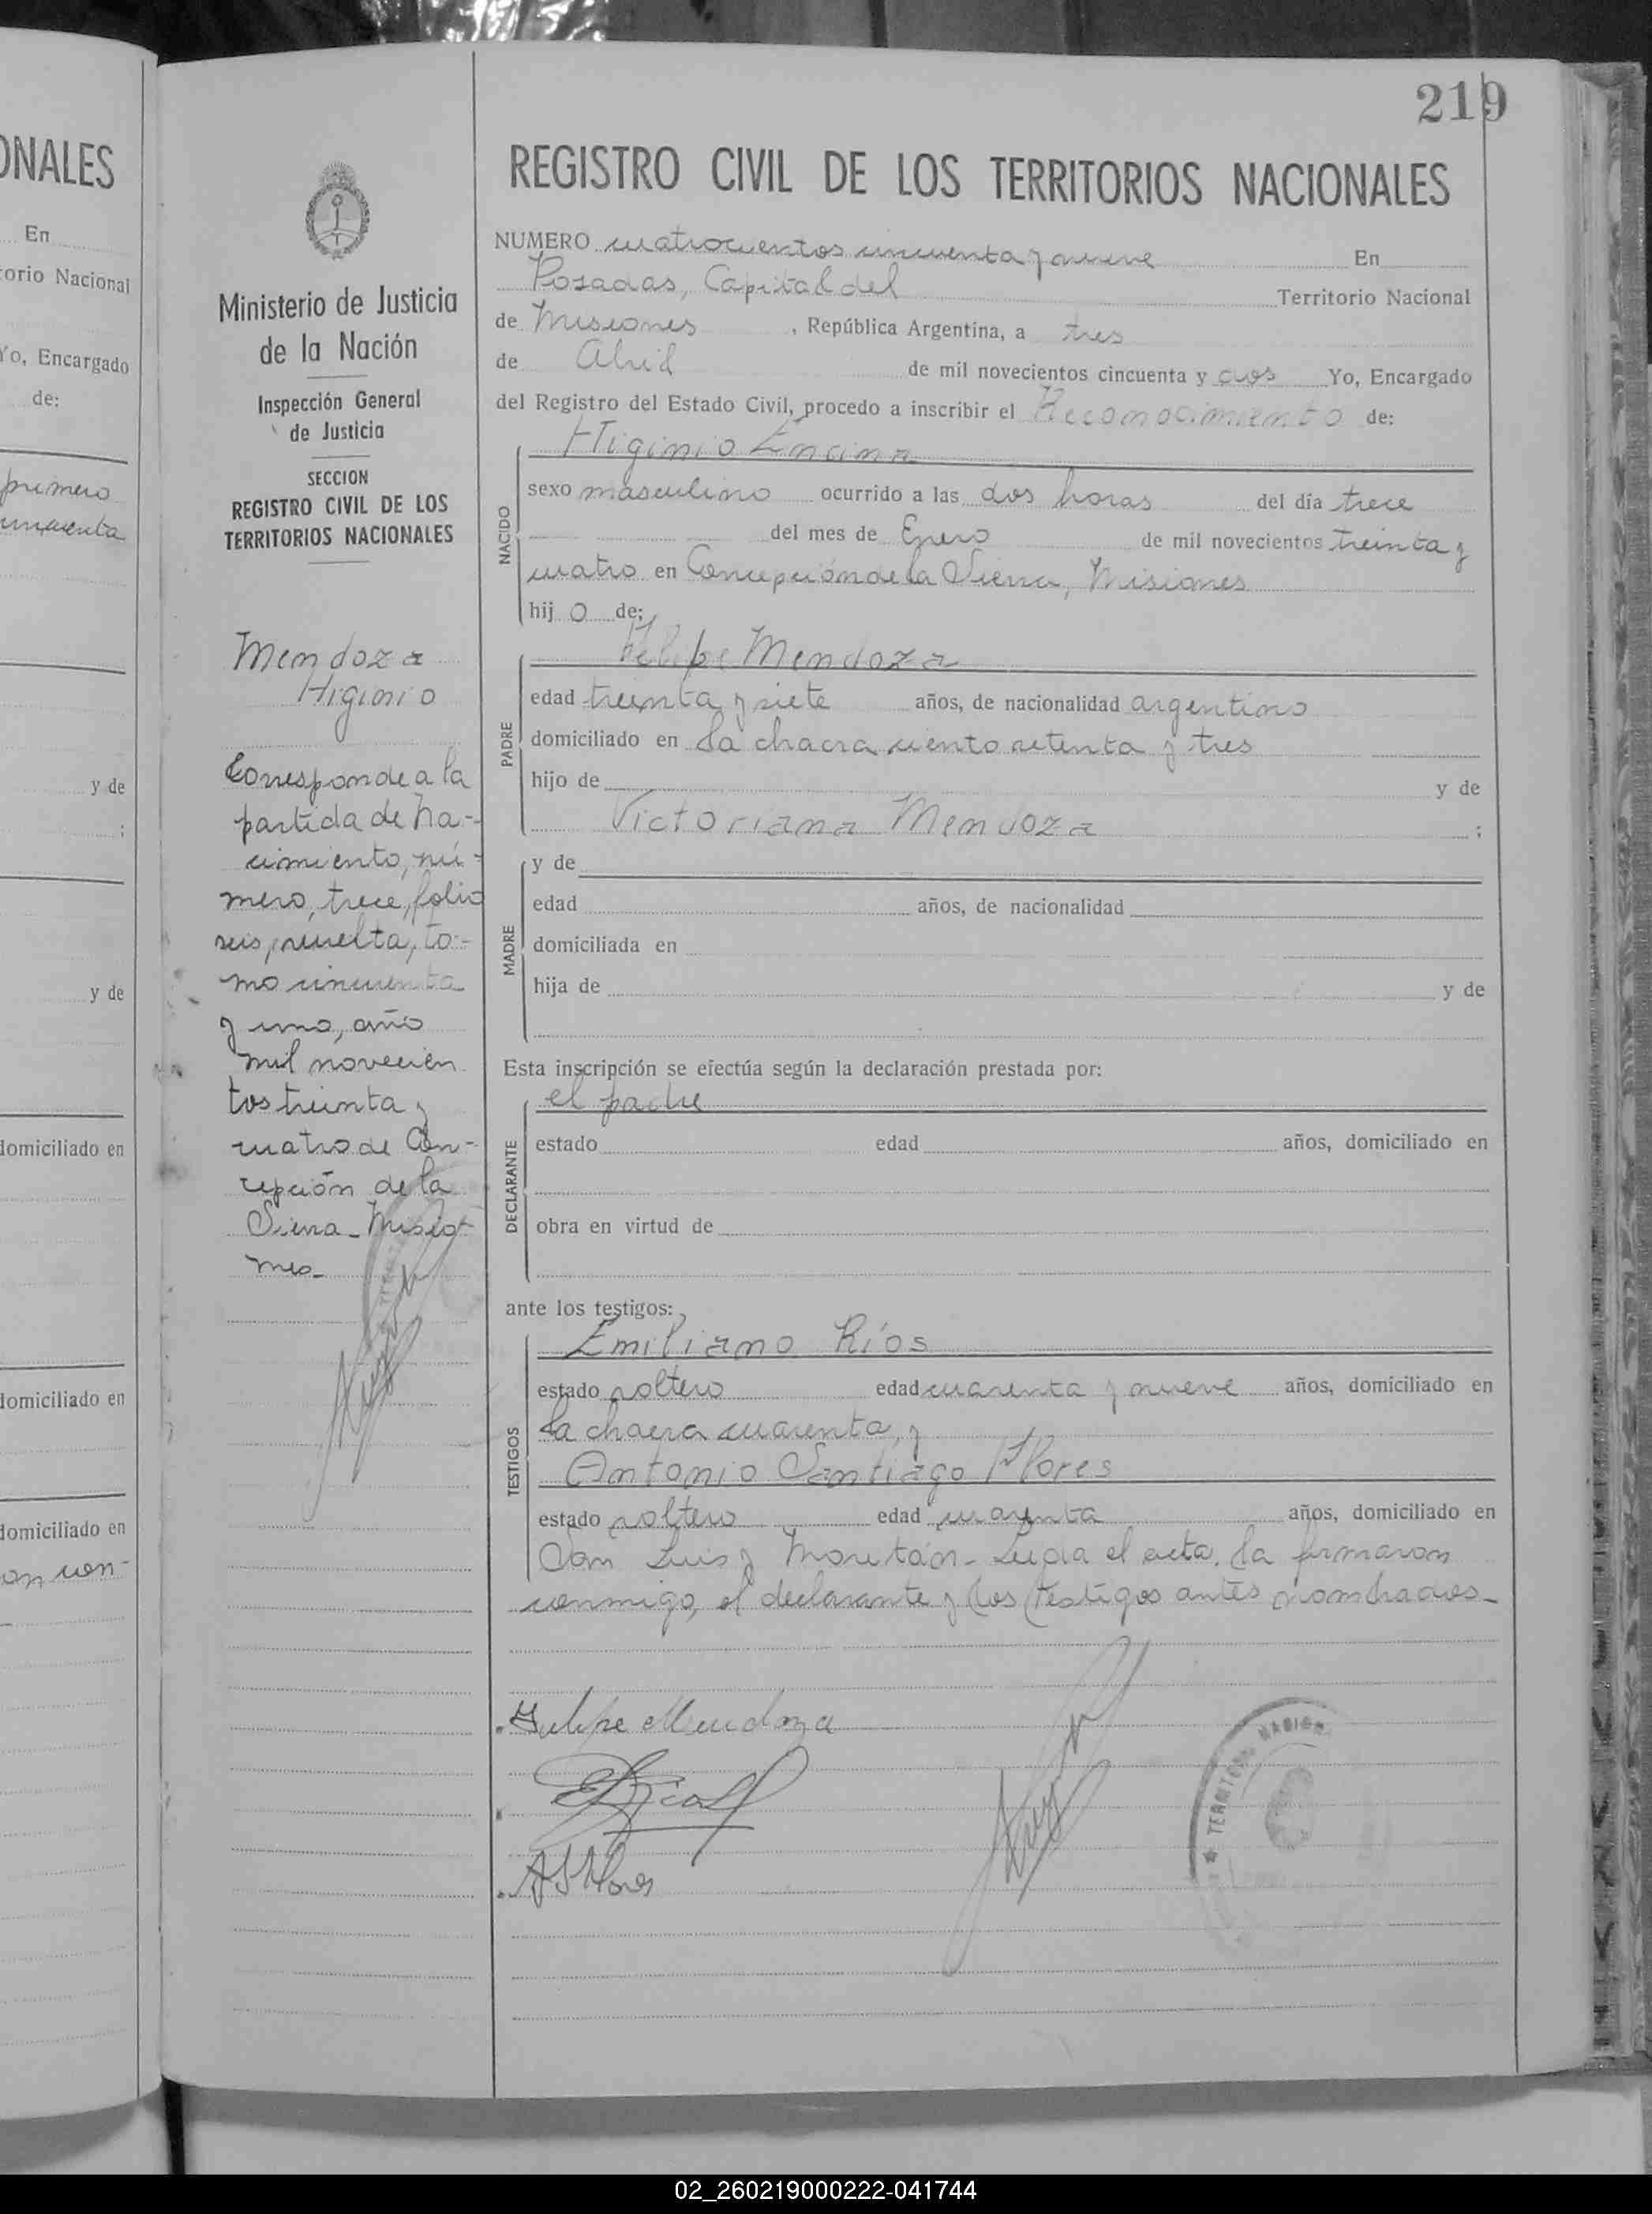 ONALES
En
torio Nacional
Yo, Encargado
de:
primero
y de
;
y de
domiciliado en
domiciliado en
domiciliado en
on con-
Ministerio de Justicia
de la Nación
Inspección General
de Justicia
SECCION
REGISTRO CIVIL DE LOS
TERRITORIOS NACIONALES
Mendoza
Higinio
Corresponde a la
partida de Na-
cimiento, nú-
mero, trece, folio
seis, vuelta, to-
mo cincuenta
y uno, año
mil novecien
tos treinta y
cuatro de Con-
cepción de la
Sierra - Misio-
nes -
219
REGISTRO CIVIL DE LOS TERRITORIOS NACIONALES
NUMERO cuatrocientos cincuenta y nueve En
Posadas, Capital del Territorio Nacional
de Misiones, República Argentina, a tres
de Abril de mil novecientos cincuenta y dos Yo, Encargado
del Registro del Estado Civil, procedo a inscribir el Reconocimiento de:
Higinio Encina
NACIDO
sexo masculino ocurrido a las dos horas del día trece
del mes de Enero de mil novecientos treinta y
cuatro en Concepción de la Sierra, Misiones
hijo de:
Felipe Mendoza
PADRE
edad treinta y siete años, de nacionalidad argentino
domiciliado en la chacra ciento setenta y tres
hijo de y de
Victoriana Mendoza ;
MADRE
y de
edad años, de nacionalidad
domiciliada en
hija de y de
Esta inscripción se efectúa según la declaración prestada por:
el padre
DECLARANTE
estado edad años, domiciliado en
obra en virtud de
ante los testigos:
Emiliano Ríos
TESTIGOS
estado soltero edad cuarenta y nueve años, domiciliado en
la chacra cuarenta, y
Antonio Santiago Flores
estado soltero edad cuarenta años, domiciliado en
San Luis y Moritán - Leída el acta, la firmaron
conmigo, el declarante y los testigos antes nombrados -
Felipe Mendoza
ASFlores
★ TERRITORIOS NACION
02_260219000222-041744